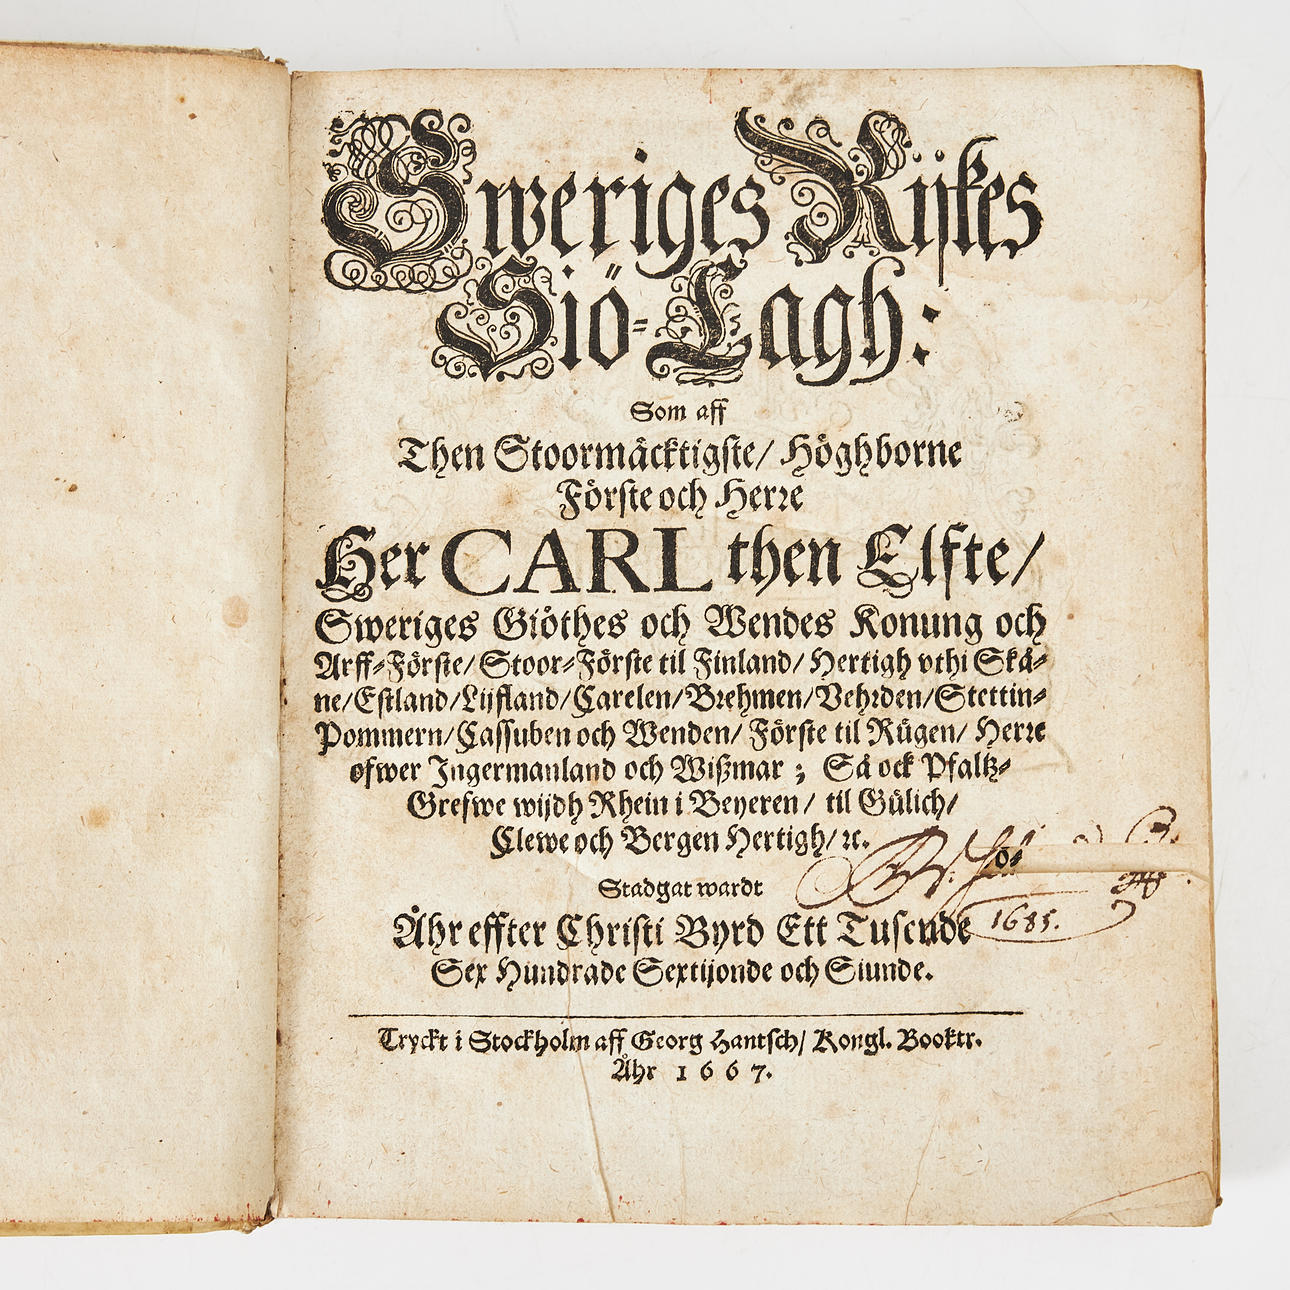 Sweriges Rijkes
Siö-Lagh:
Som aff
Then Stoormäcktigste/ Höghborne
Förste och Herre
Her CARL then Elfte/
Sweriges Giöthes och Wendes Konung och
Arff-Förste/ Stoor-Förste til Finland/ Hertigh vthi Skå-
ne/ Estland/ Lijfland/ Carelen/ Brehmen/ Vehrden/ Stettin-
Pommern/ Cassuben och Wenden/ Förste til Rügen/ Herre
öfwer Ingermanland och Wißmar; Så ock Pfaltz-
Grefwe wijdh Rhein i Beyeren/ til Gülich/
Clewe och Bergen Hertigh/ ꝛc.
Stadgat wardt
Åhr effter Christi Byrd Ett Tusende
1685.
Sex Hundrade Sextijonde och Siunde.
Tryckt i Stockholm aff Georg Hantsch/ Kongl. Booktr.
Åhr 1667.